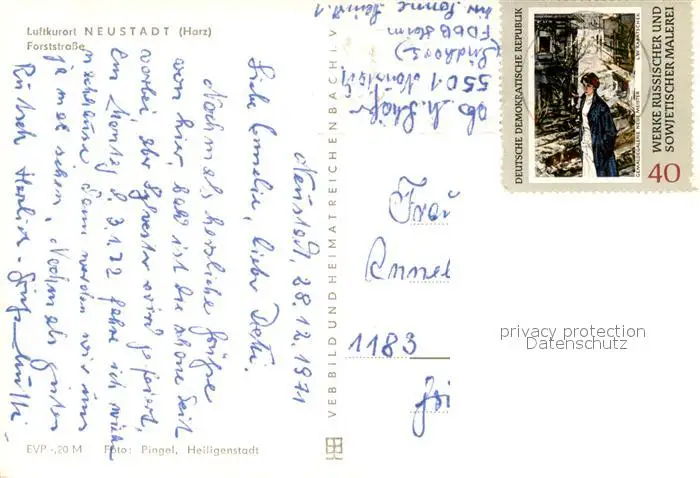 Luftkurort NEUSTADT (Harz)
Forststraße
Neustadt, 28.12.1971
Liebe Cornelia, lieber Deti.
Nochmals herzliche Grüße
von hier bald ist die schöne Zeit
vorbei der Sylvester wird gefeiert,
am Montag d. 3.1.72 fahre ich nach
Dann werden wir uns
ja mal sehen. Nochmals guten
Rutsch Herzlich
EVP -,20 M Foto: Pingel, Heiligenstadt
VEB BILD UND HEIMAT REICHENBACH I. V
5501 Neustadt
(Südharz)
FDGB Heim
Frau
Annel
1183
DEUTSCHE DEMOKRATISCHE REPUBLIK
GEMÄLDEGALERIE NEUE MEISTER
WERKE RUSSISCHER UND
SOWJETISCHER MALEREI
40
privacy protection
Datenschutz